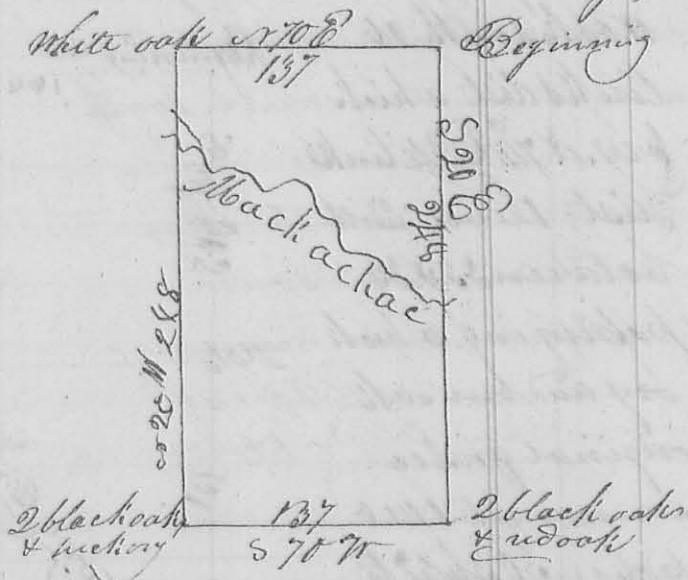 White oak N 70 E
137
Beginning
S 20 E
248
Mackachac
N 20 W 248
2 black oak
& hickory
137
S 70 W
2 black oaks
& red oak